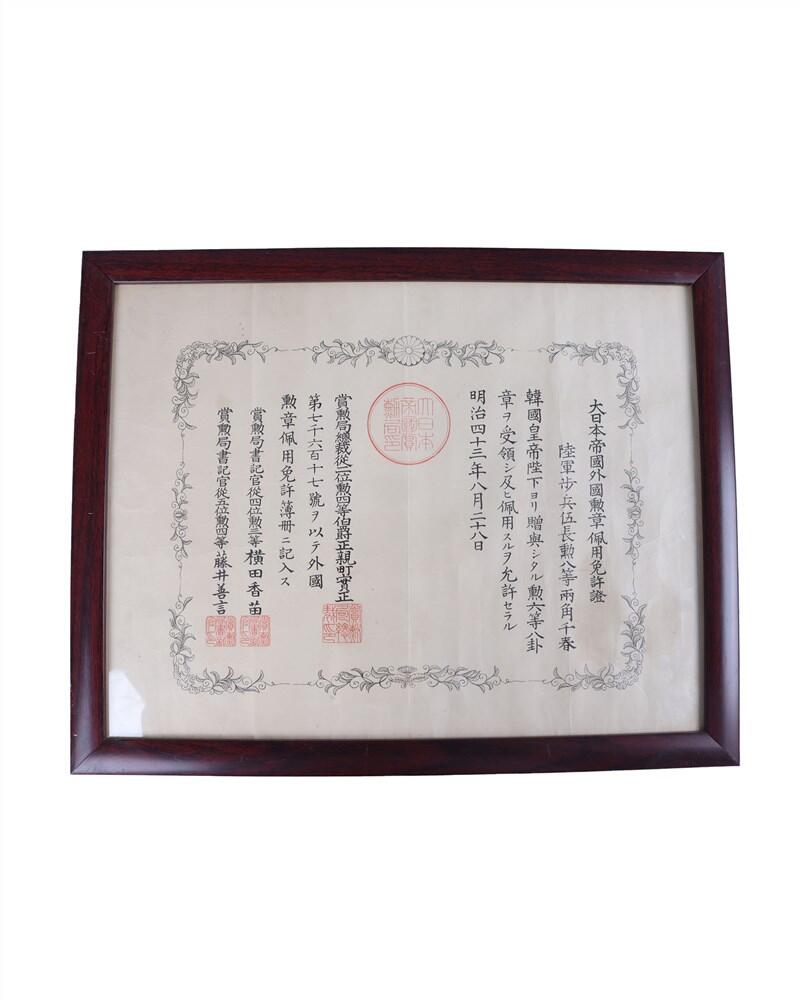 大日本帝國外國勲章佩用免許證
陸軍歩兵伍長勲八等兩角千春
韓國皇帝陛下ヨリ贈與シタル勲六等八卦
章ヲ受領シ及ヒ佩用スルヲ允許セラル
明治四十三年八月二十八日
大日本
帝國賞
勲局印
賞勲局總裁從二位勲四等伯爵正親町實正
第七千六百十七號ヲ以テ外國
勲章佩用免許簿册ニ記入ス
賞勲局書記官從四位勲三等横田香苗
賞勲局書記官從五位勲四等藤井善言